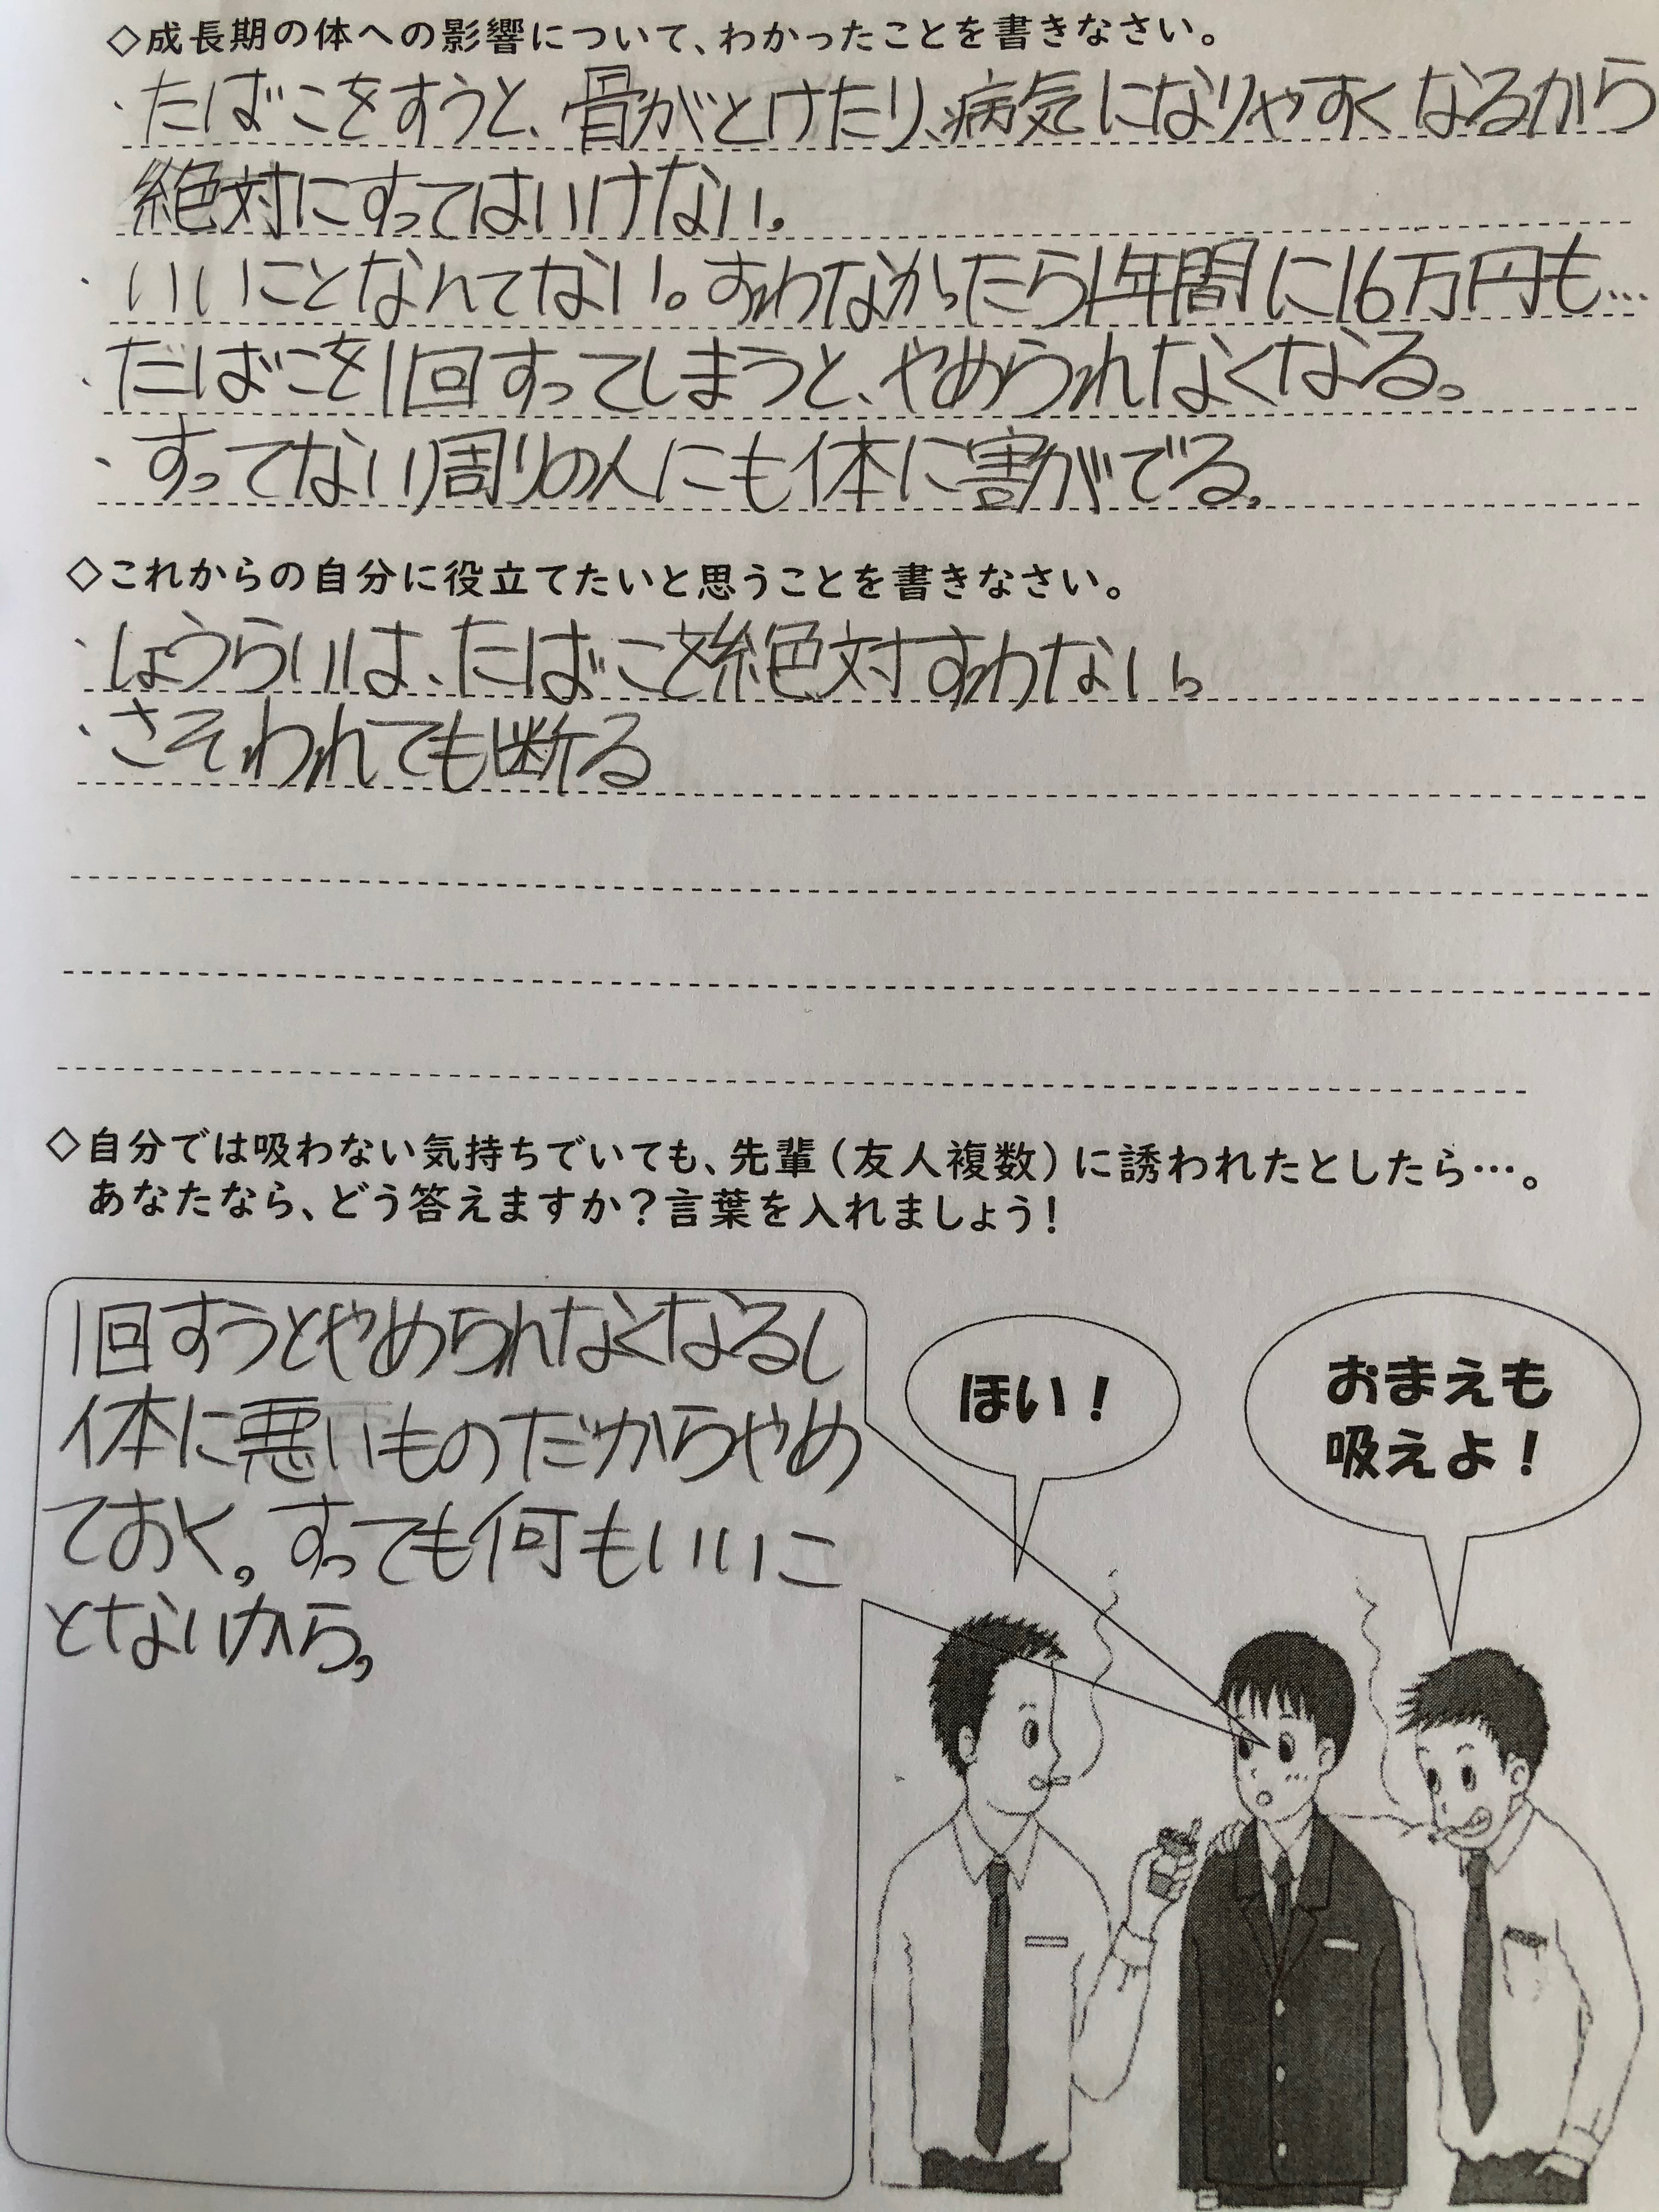 ◇成長期の体への影響について、わかったことを書きなさい。
・たばこをすうと、骨がとけたり、病気になりやすくなるから
絶対にすってはいけない。
・いいことなんてない。すわなかったら1年間に16万円も…
・たばこを1回すってしまうと、やめられなくなる。
・すってない周りの人にも体に害がでる。
◇これからの自分に役立てたいと思うことを書きなさい。
・しょうらいは、たばこを絶対すわない。
・さそわれても断る
◇自分では吸わない気持ちでいても、先輩(友人複数)に誘われたとしたら…。
あなたなら、どう答えますか?言葉を入れましょう!
1回すうとやめられなくなるし
体に悪いものだからやめ
ておく。すっても何もいいこ
とないから。
ほい!
おまえも
吸えよ!